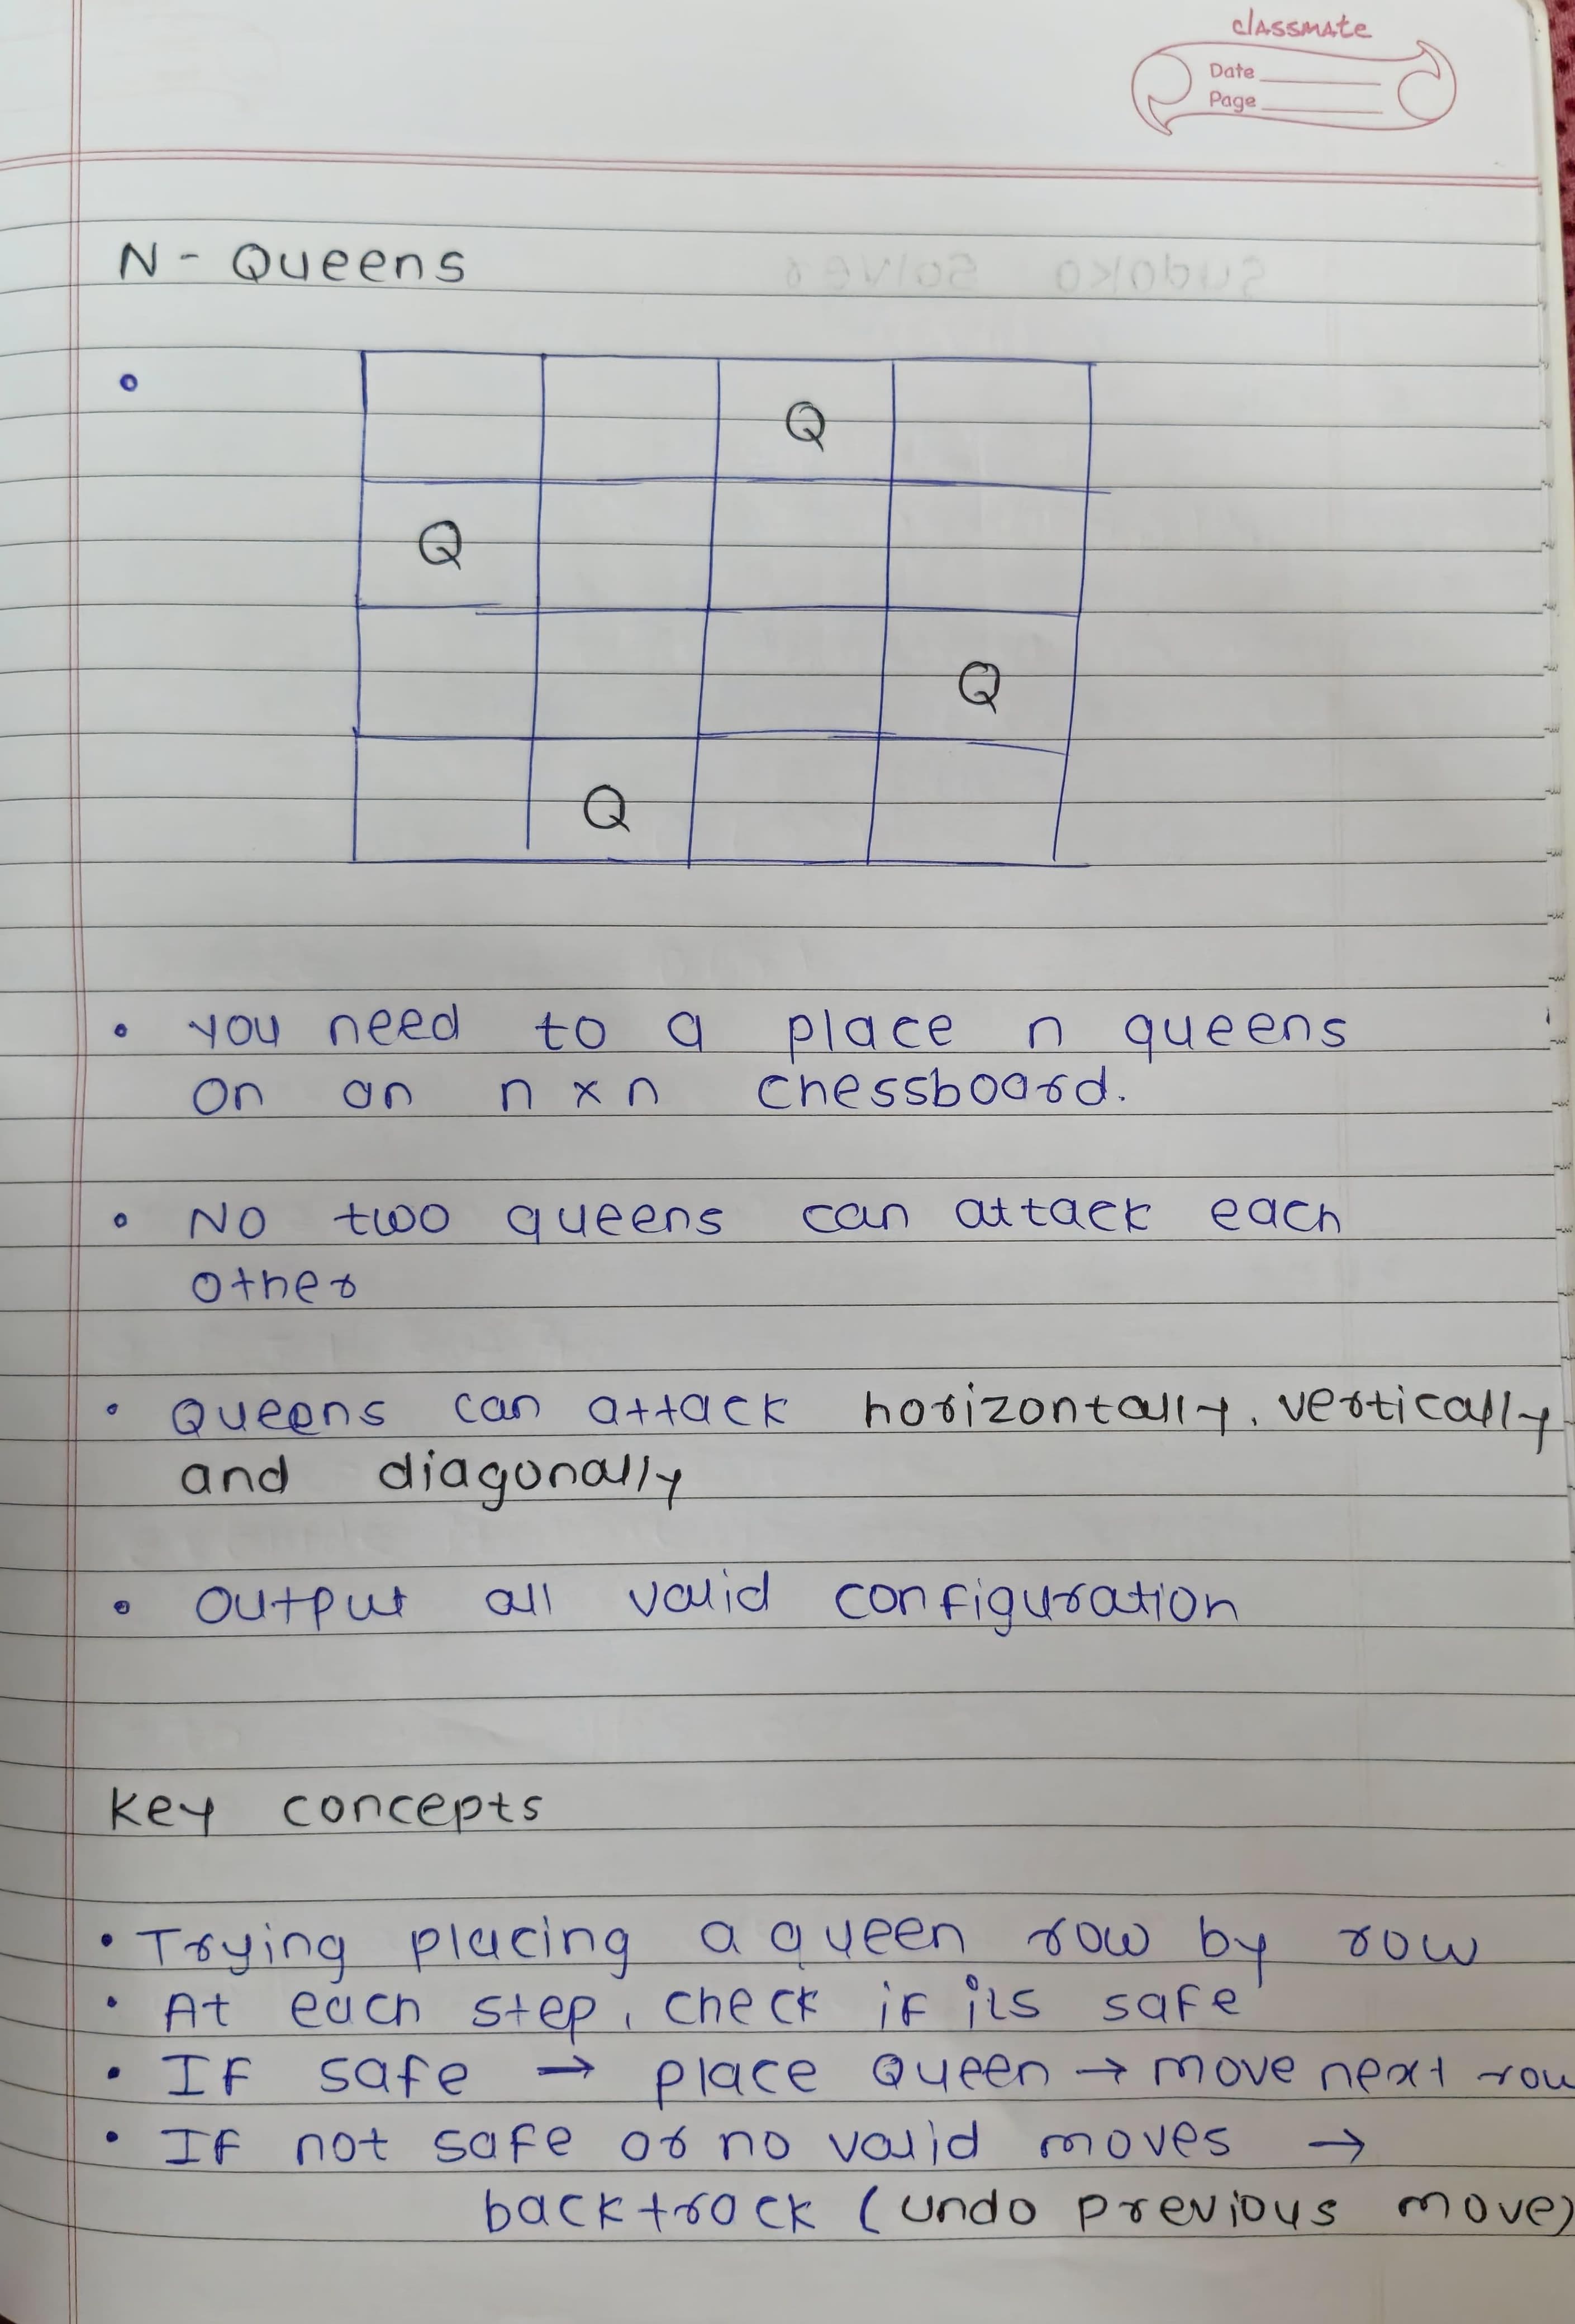 classmate
Date
Page
N - Queens
Q
Q
Q
Q
• You need to a place n queens
on an n x n chessboard.
• No two queens can attack each
other
• Queens can attack horizontally, vertically
and diagonally
• Output all valid configuration
Key concepts
• Trying placing a queen row by row
• At each step, check if its safe
• If safe → place Queen → move next row
• If not safe or no valid moves →
backtrack (undo previous move)